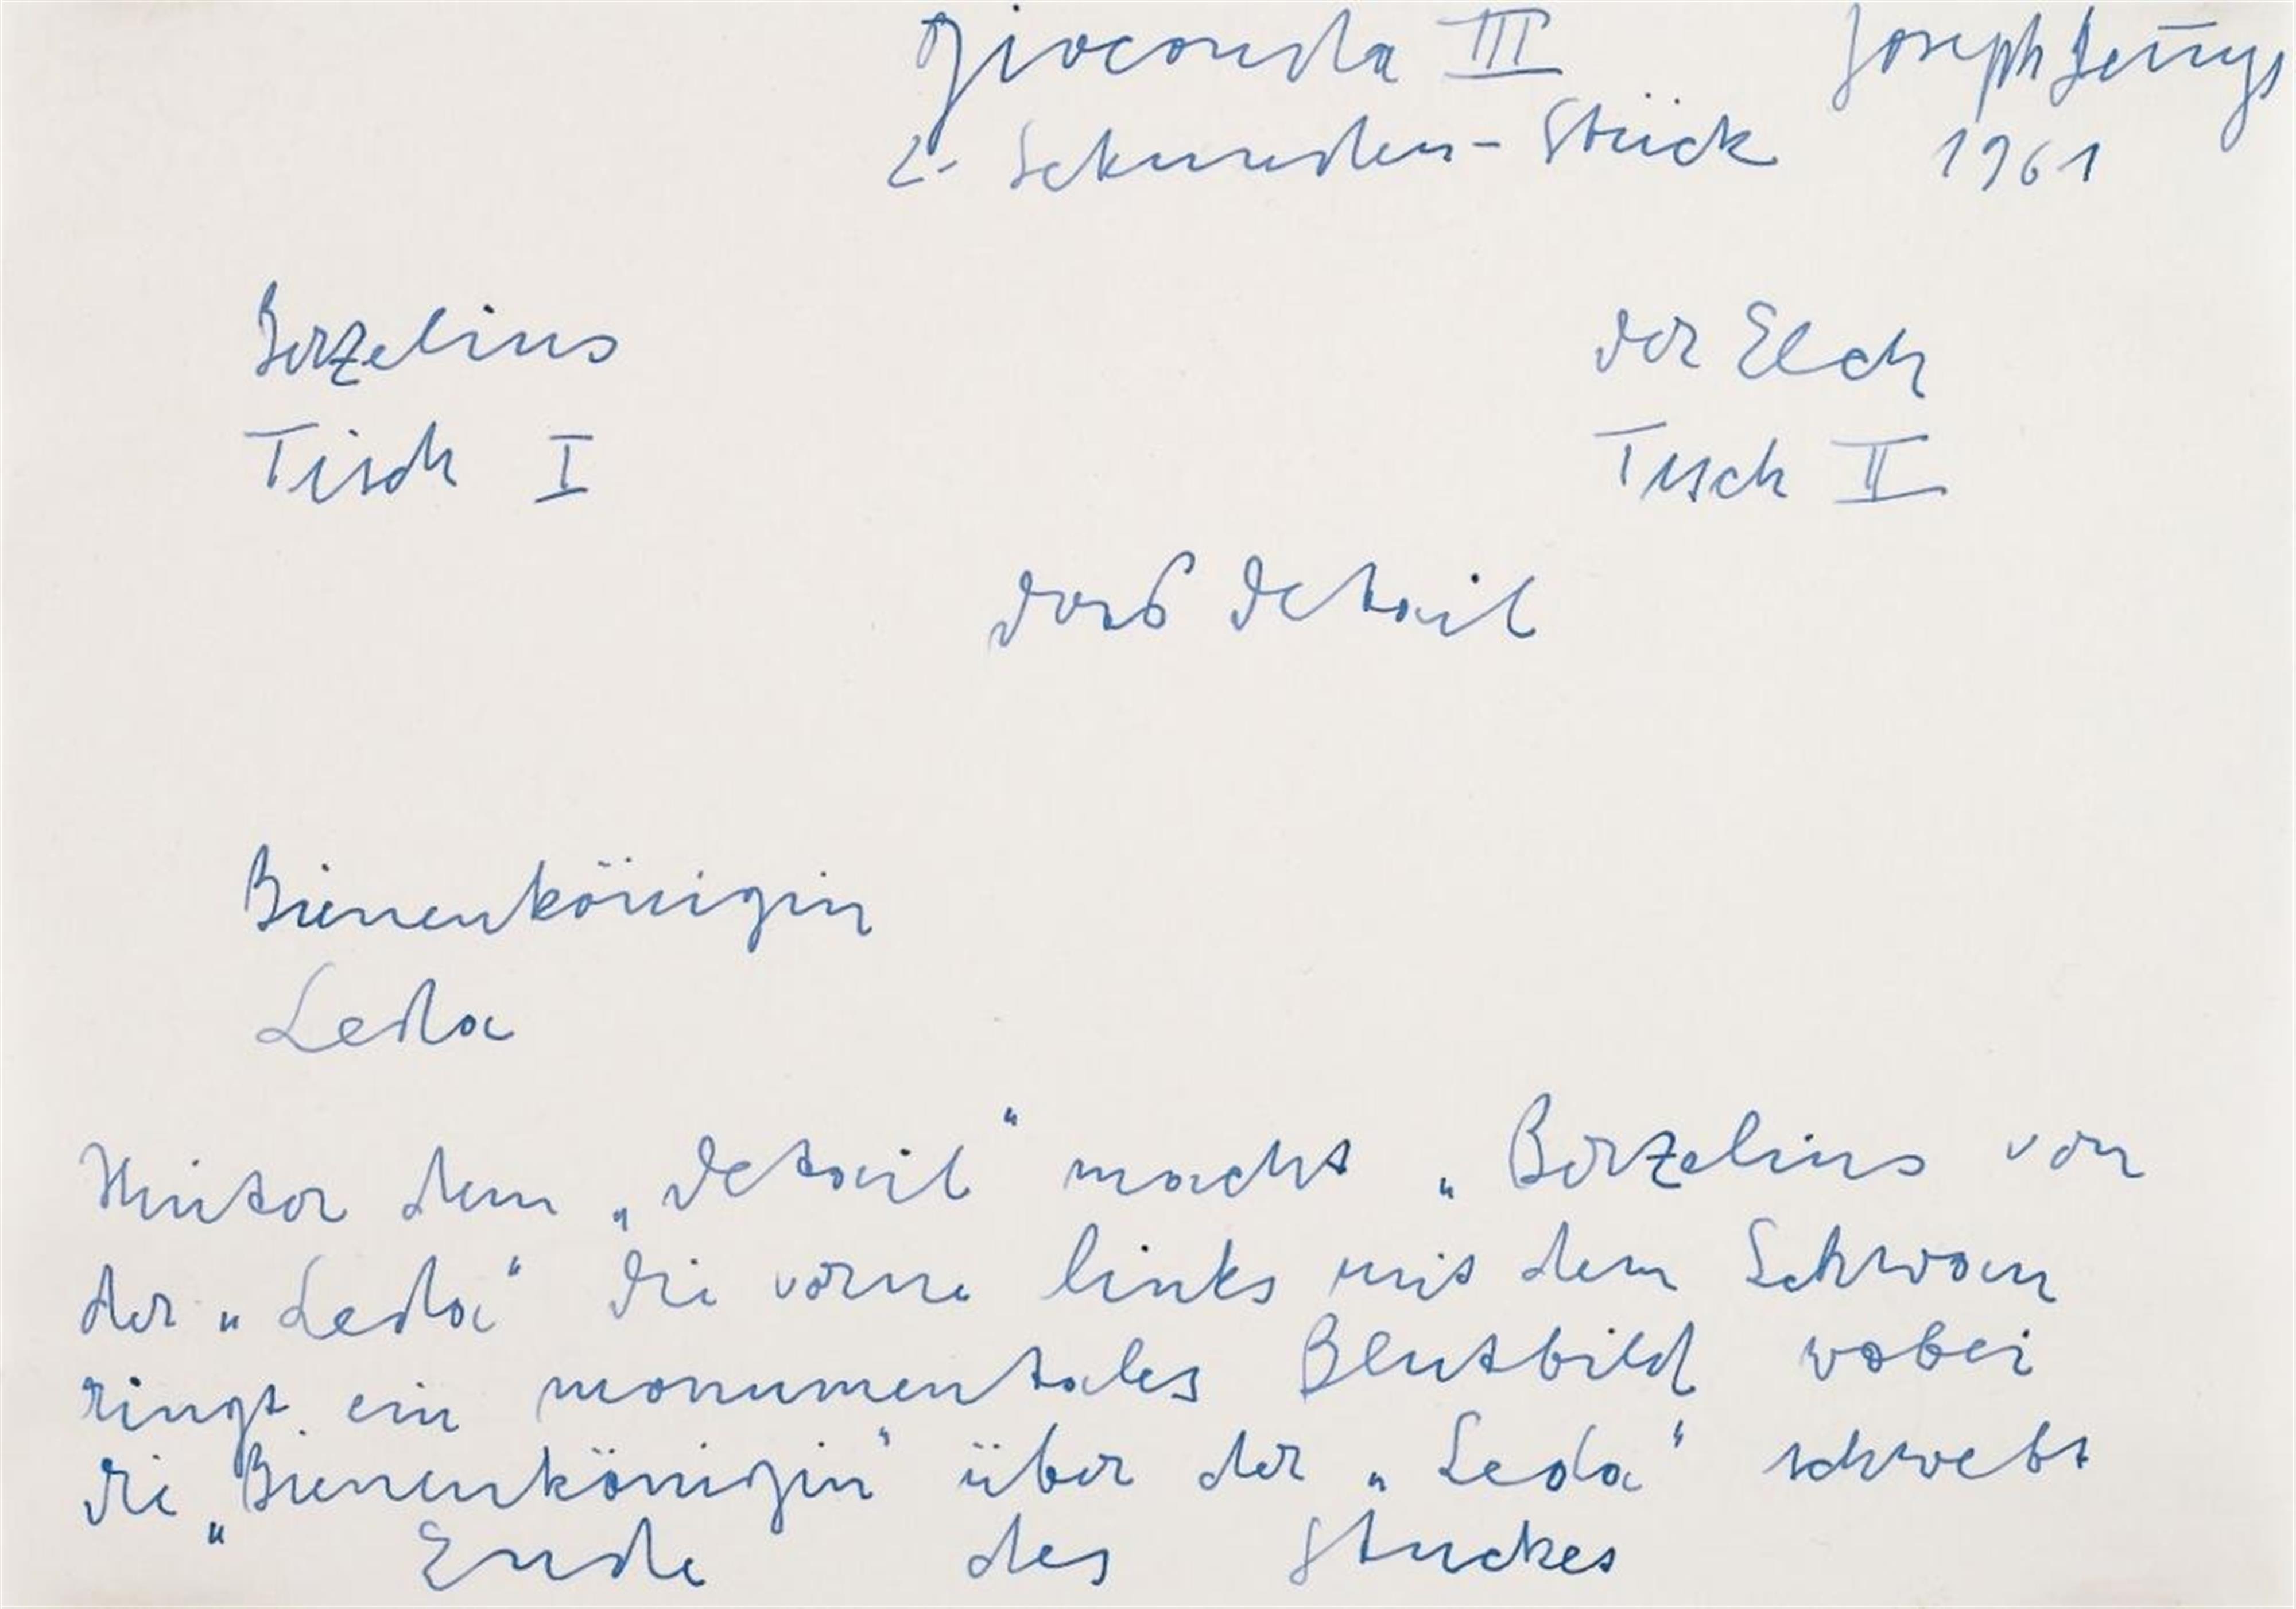 Gioconda III Joseph Beuys
2- Sekunden-Stück 1961
Berzelius der Elch
Tisch I Tisch II
das Detail
Bienenkönigin
Leda
Hinter dem „Detail“ macht „Berzelius von
der „Leda“ die vorne links mit dem Schwan
ringt ein monumentales Blutbild wobei
die „Bienenkönigin“ über der „Leda“ schwebt
Ende des Stuckes